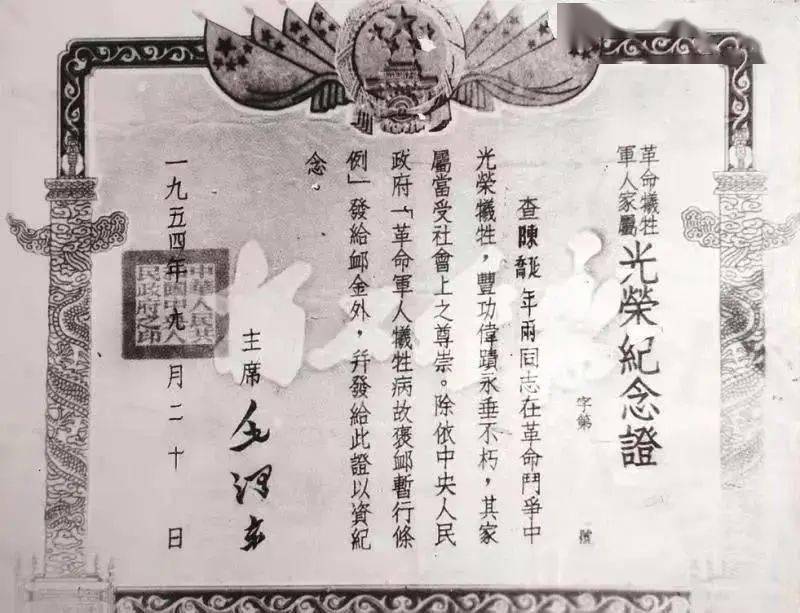 革命犧牲
軍人家屬
光榮紀念證
字第 號
查陳喬延年兩同志在革命鬥爭中
光榮犧牲，豐功偉蹟永垂不朽，其家
屬當受社會上之尊崇。除依中央人民
政府「革命軍人犧牲病故褒卹暫行條
例」發給卹金外，幷發給此證以資紀
念
主席 毛澤东
一九五四年九月二十日
中華人民共
和國中央人
民政府之印